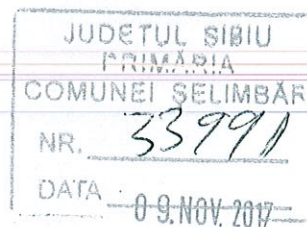 JUDEŢUL SIBIU
PRIMĂRIA
COMUNEI ŞELIMBĂR
NR. 33991
DATA 09. NOV. 2017